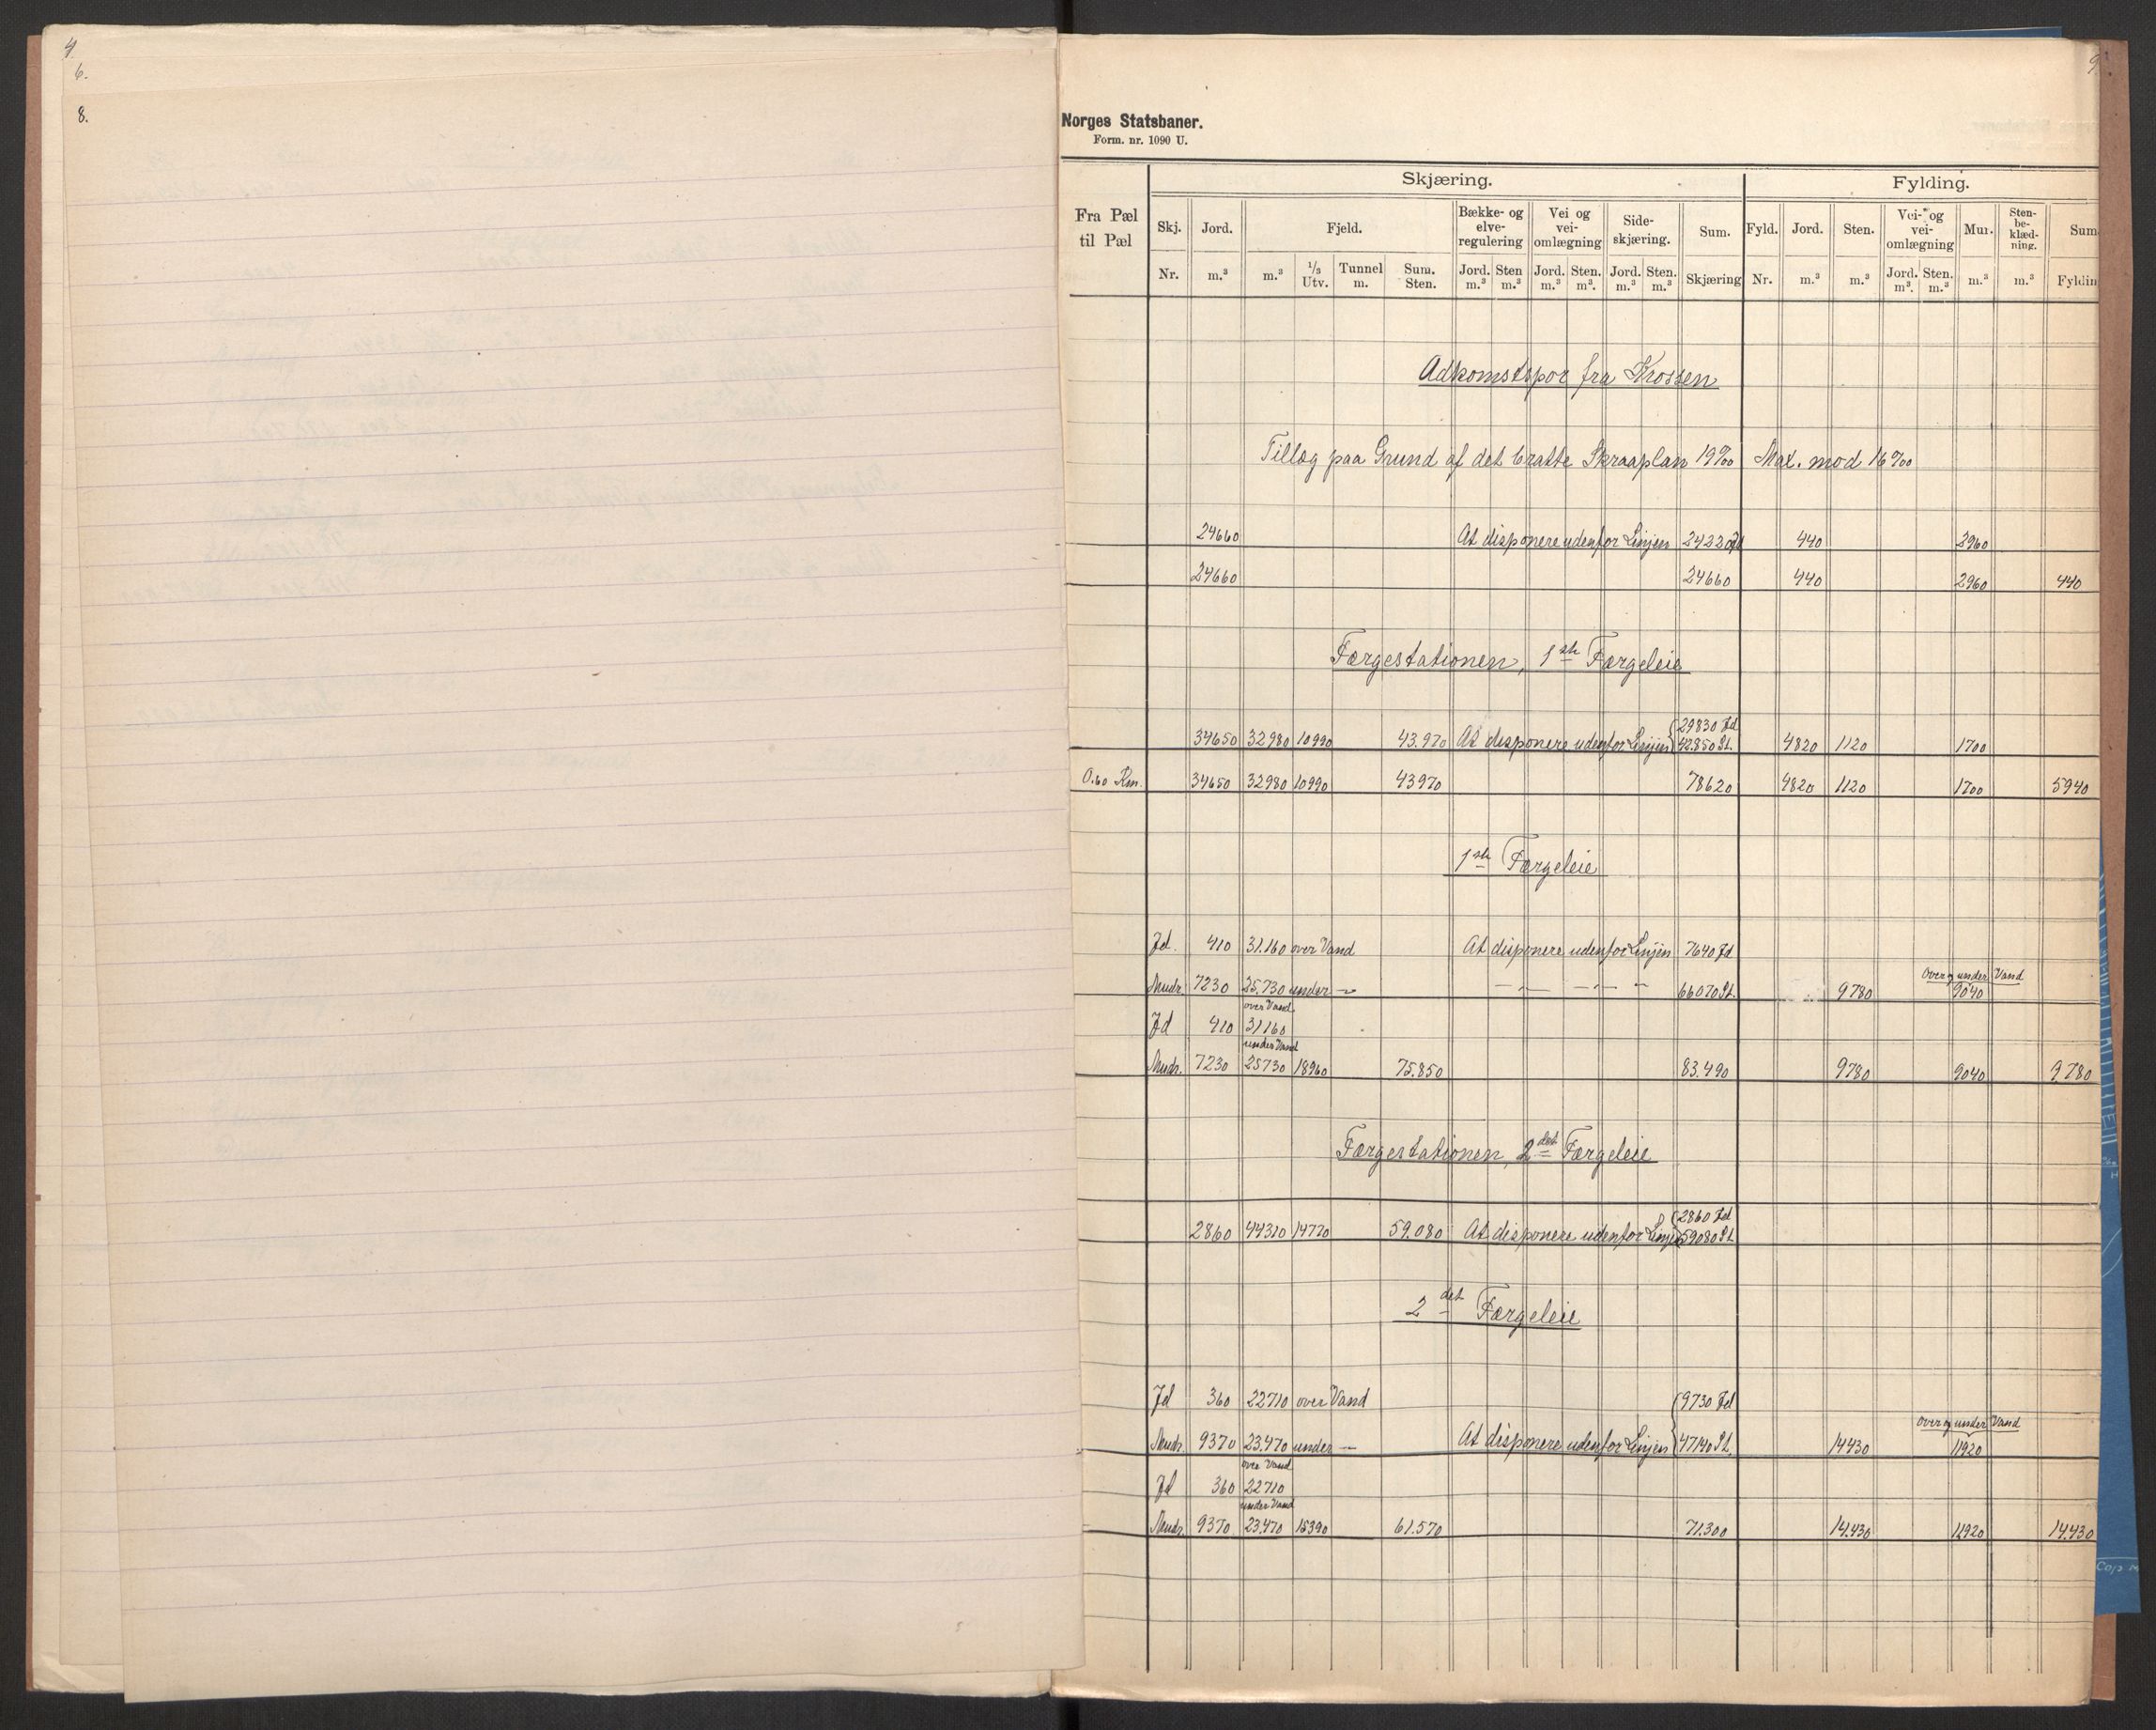 4.
6.
8.
9.
Norges Statsbaner.
Form. nr. 1090 U.
Skjæring. Fylding.
Fra Pæl til Pæl Skj. Jord. Fjeld. Bække- og elve-regulering Vei og vei-omlægning Side-skjæring. Sum. Fyld. Jord. Sten. Vei- og vei-omlægning Mur. Sten-be-klæd-ning. Sum
Nr. m.³ m.³ 1/3 Utv. Tunnel m. Sum. Sten. Jord. m.³ Sten m.³ Jord. m.³ Sten. m³. Jord. m.³ Sten. m.³ Skjæring Nr. m.³ m.³ Jord. m³. Sten. m.³ m.³ m.³ Fyldin
Adkomstspor fra Krossen
Tillæg paa Grund af det bratte Skraaplan 19‰ Max. mod 16‰
24660 At disponere udenfor Linjen 24220 Jd 440 2960
24660 24660 440 2960 440
Færgestationen, 1ste Færgeleie
29830 Jd
34650 32980 10990 43.970 At disponere udenfor Linjen 42.850 St. 4820 1120 1700
0.60 Km. 34650 32980 10990 43970 78620 4820 1120 1700 5940
1ste Færgeleie
Jd. 410 31.160 over Vand At disponere udenfor Linjen 7640 Jd
Over og under Vand
Mudr. 7230 25.730 under — — „ — — „ — — 66070 St. 9780 9040
over Vand
Jd 410 31160
under Vand
Mudr. 7230 25730 18960 75.850 83.490 9780 9040 9780
Færgestationen, 2det Færgeleie
2860 Jd
2860 44310 14770 59.080 At disponere udenfor Linjen 59080 St.
2det Færgeleie
Jd 360 22710 over Vand 9730 Jd
over og under Vand
Mudr. 9370 23.470 under — At disponere udenfor Linjen 47140 St. 14430 11920
over Vand
Jd 360 22710
under Vand
Mudr. 9370 23.470 15390 61.570 71.300 14.430 11920 14.430